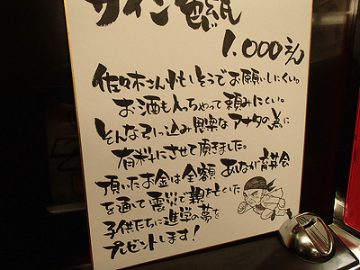 サイン色紙
1,000えん
佐々木さん忙しそうでお願いしにくい。
お酒も入っちゃって頼みにくい。
そんな引っ込み思案なアナタの為に
有料にさせて頂きました。
頂いたお金は全額 あしなが育英会
を通て震災で親を亡くした
子供たちに進学の夢を
プレゼントします!